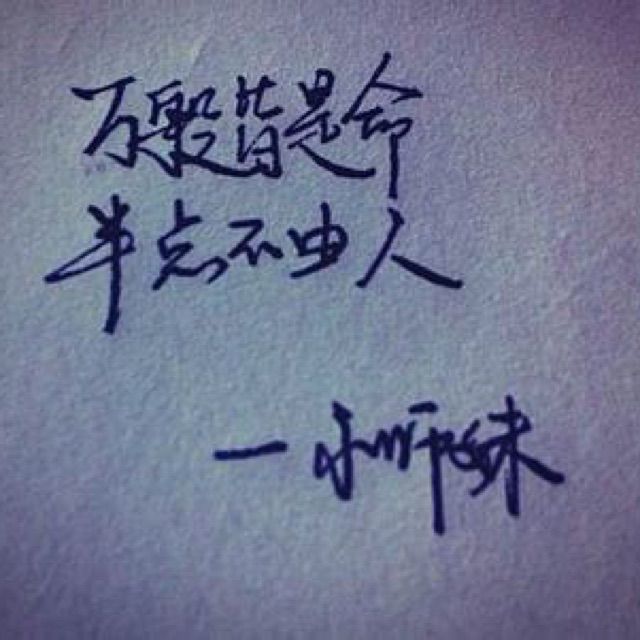 万般皆是命
半点不由人
—小师妹